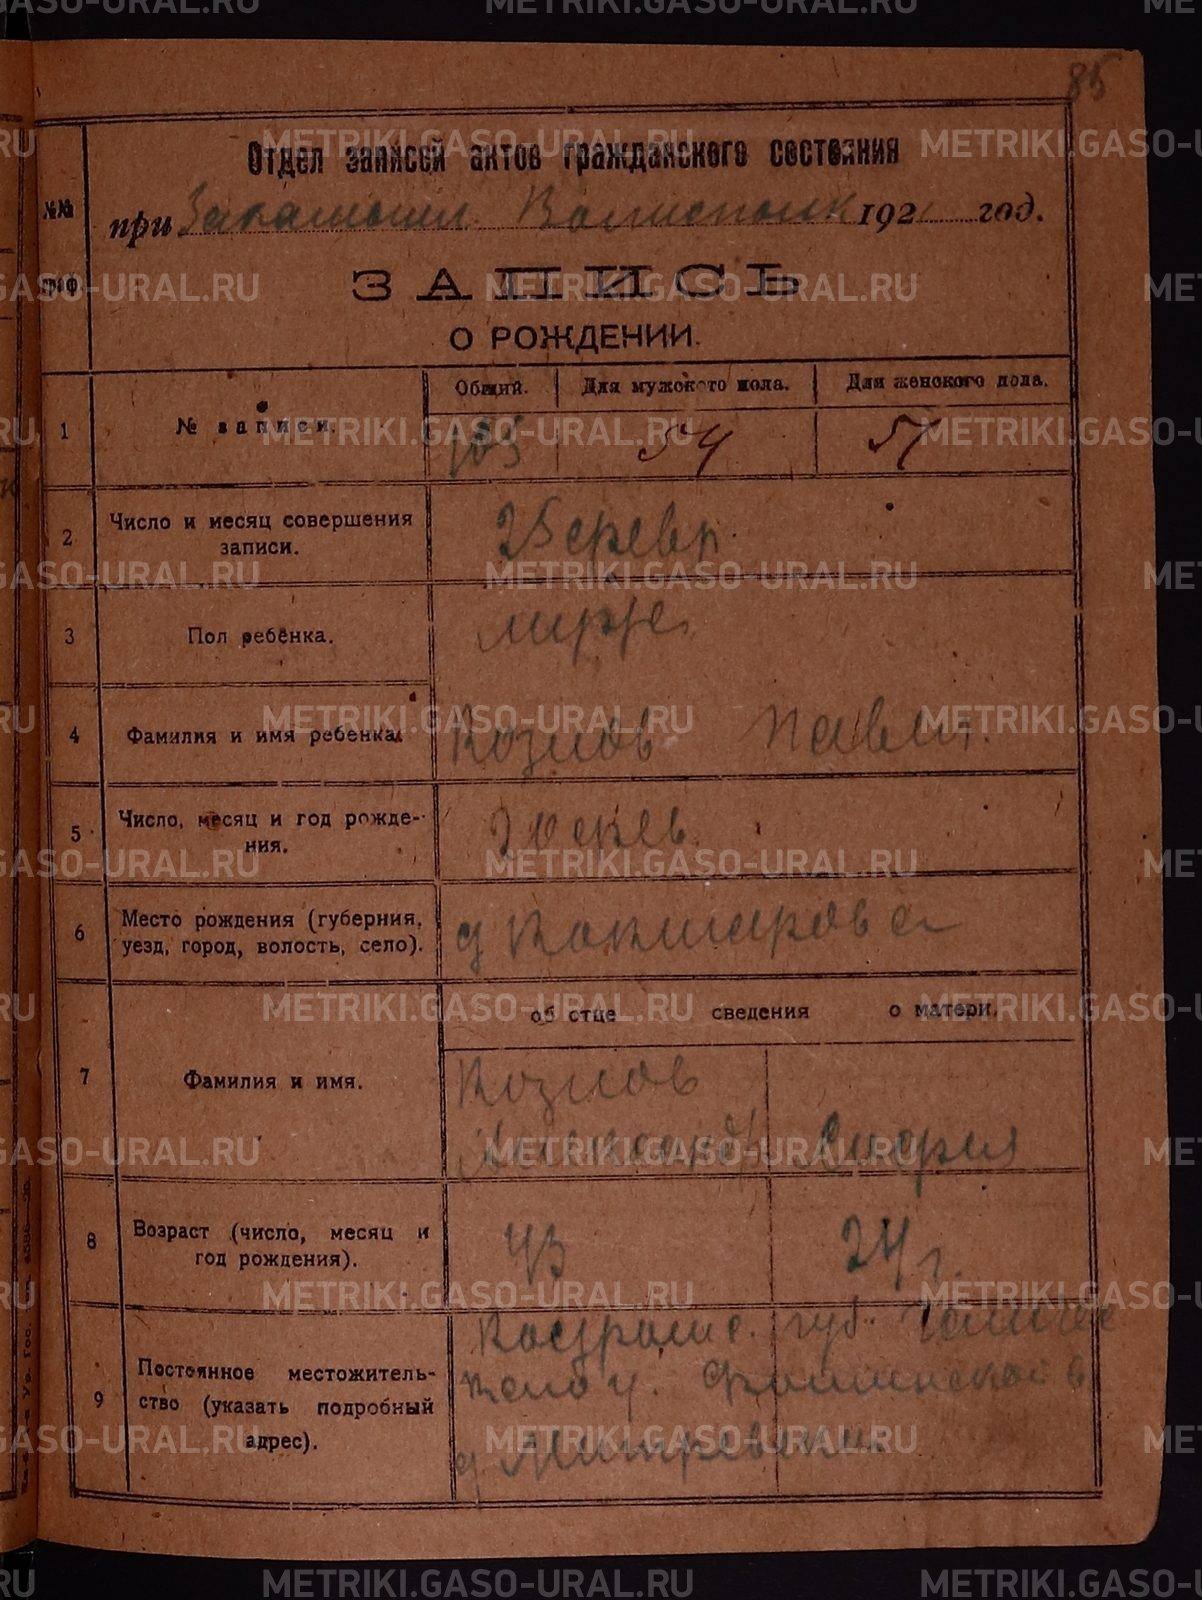 85
Отдел записей актов гражданского состояния
№№ граф.
при Закамышл. Волисполк 1921 год.
ЗАПИСЬ
О РОЖДЕНИИ.
Общий. Для мужского пола. Для женского пола.
1 № записи. 105 54 51
2 Число и месяц совершения
записи. 25 февр.
3 Пол ребенка.
4 Фамилия и имя ребенка. Козлов Павел.
5 Число, месяц и год рожде-
ния. 20
6 Место рождения (губерния,
уезд, город, волость, село). д Кокшарова
об отце сведения о матери.
7 Фамилия и имя. Козлов
Александр
8 Возраст (число, месяц и
год рождения). 43 24 г.
9 Постоянное местожитель-
ство (указать подробный
адрес).
Костромс. губ.
у. Фоминской в
д
METRIKI.GASO-URAL.RU